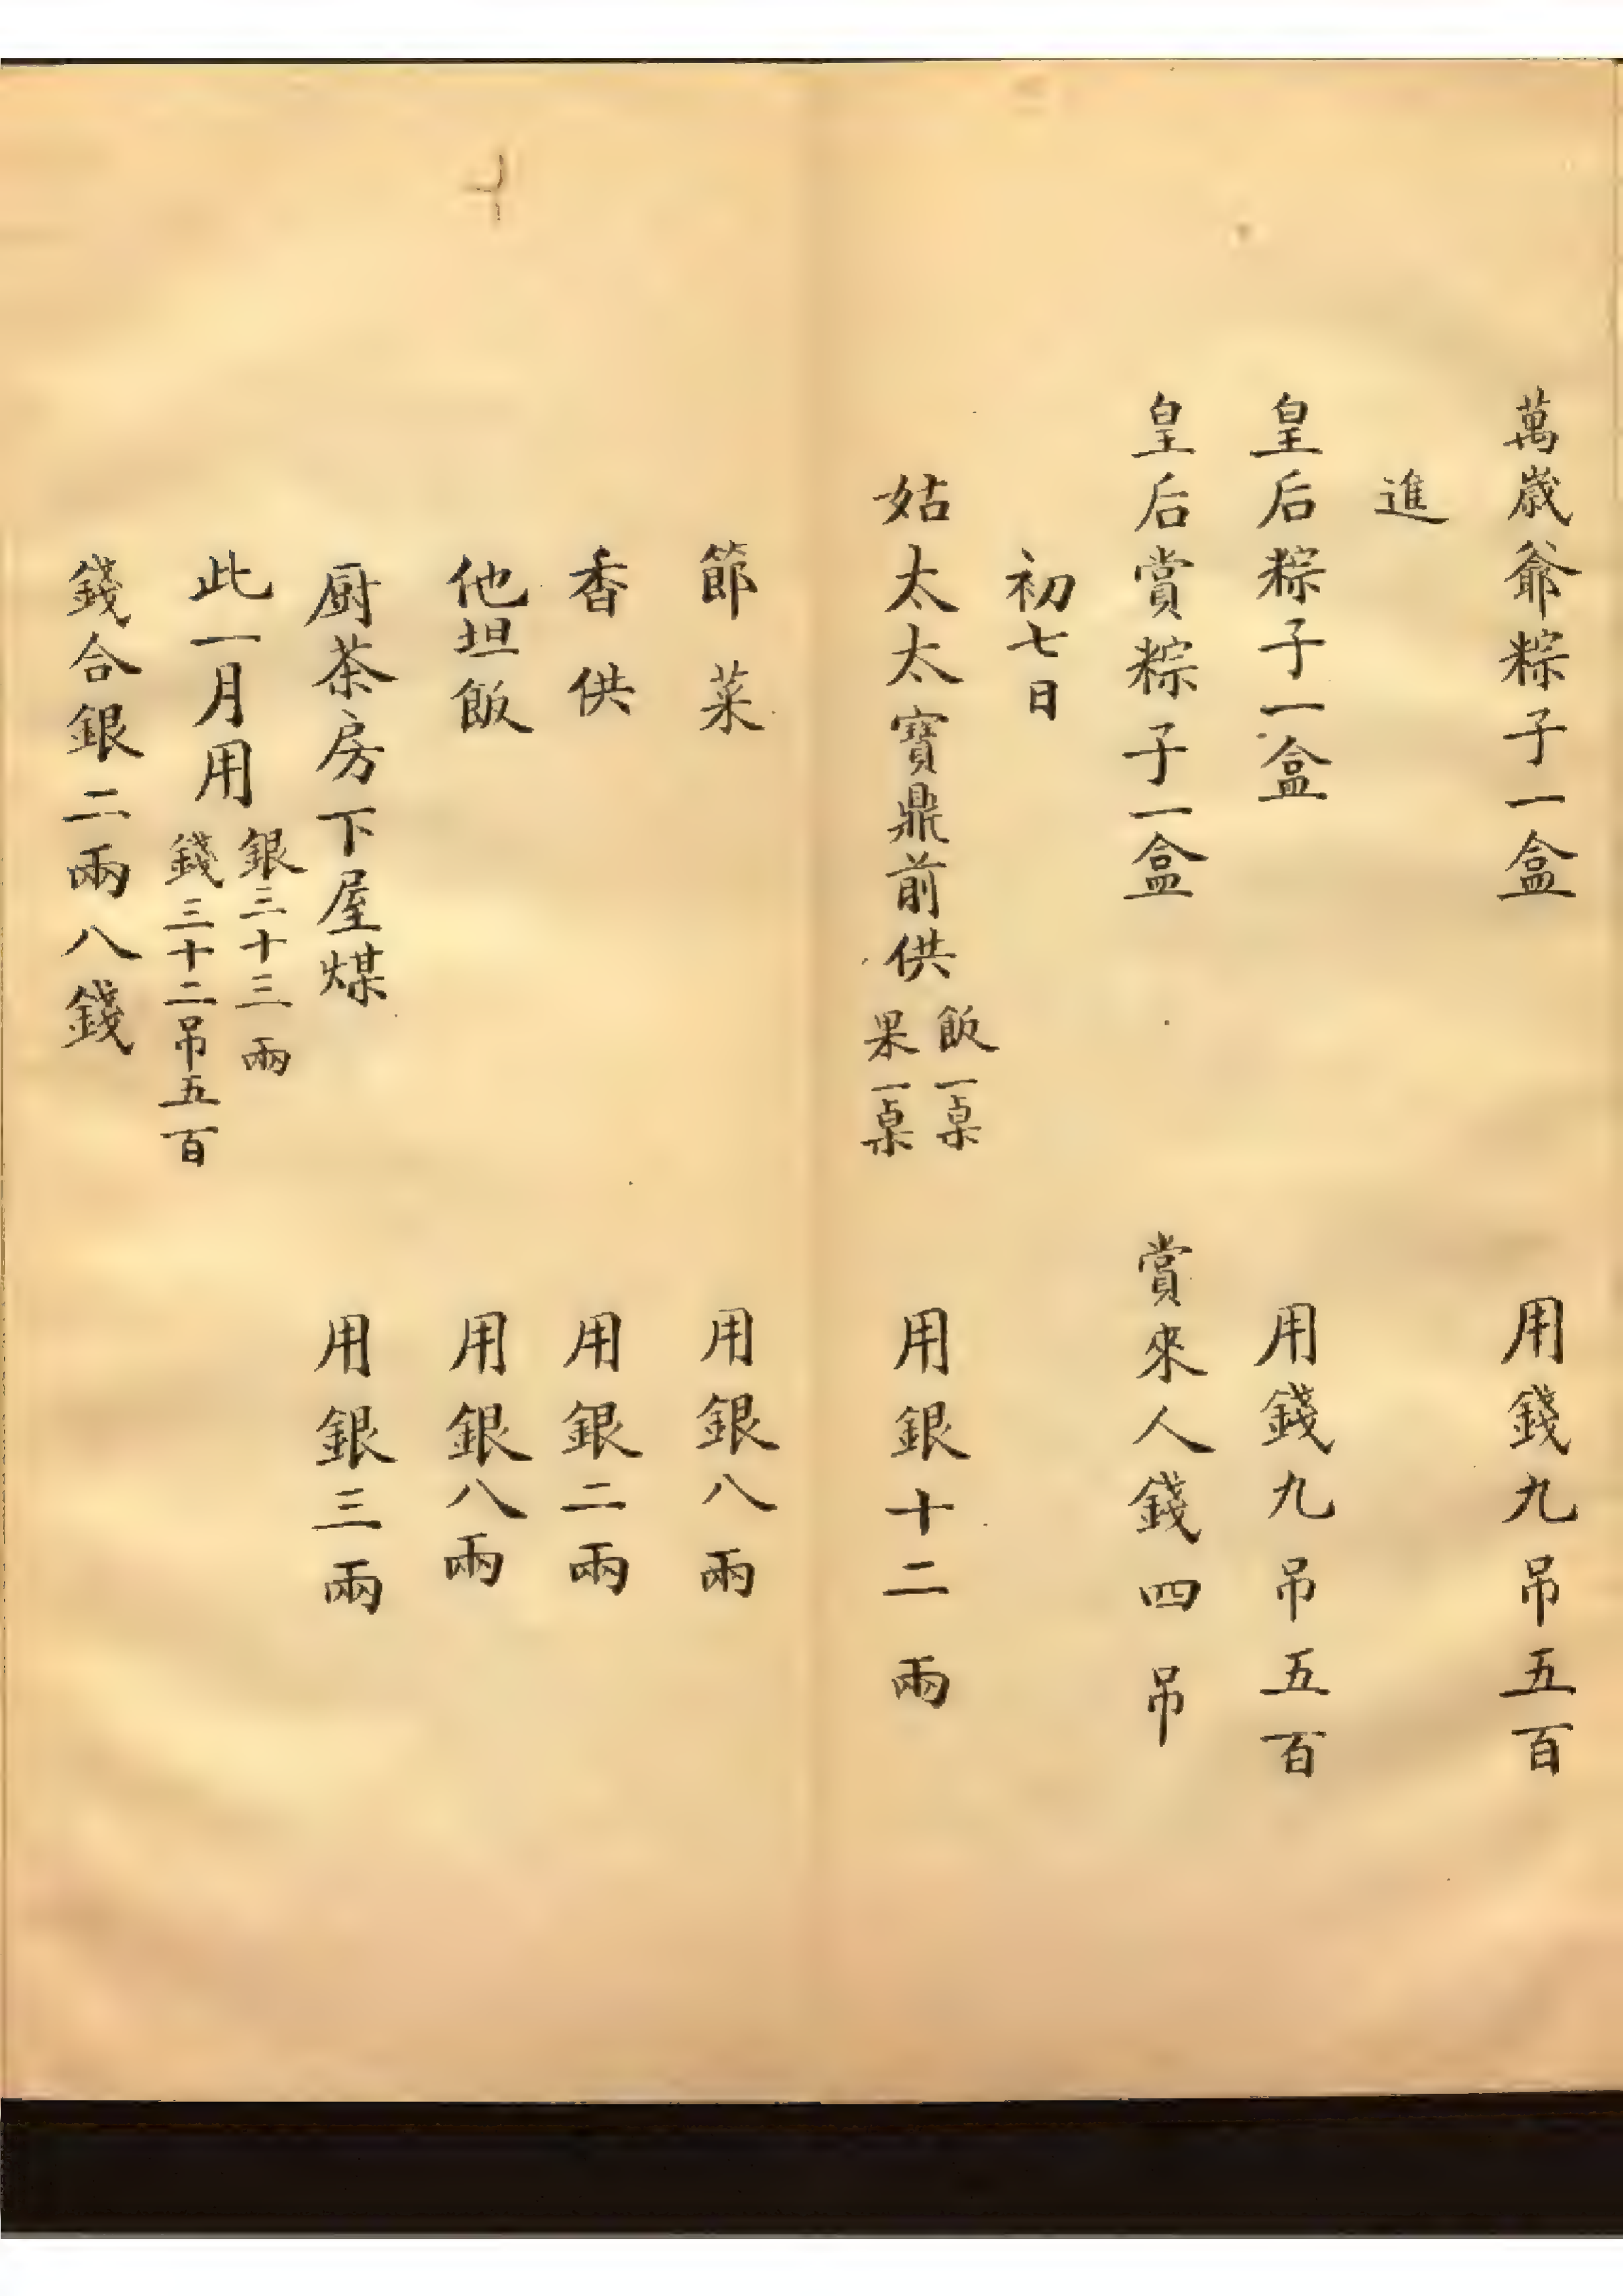 萬歲爺粽子一盒 用錢九吊五百
進
皇后粽子一盒 用錢九吊五百
皇后賞粽子一盒 賞來人錢四吊
初七日
姑太太寶鼎前供 飯一桌 果一桌 用銀十二兩
節菜 用銀八兩
香供 用銀二兩
他坦飯 用銀八兩
厨茶房下屋煤 用銀三兩
此一月用 銀三十三兩 錢三十二吊五百
錢合銀二兩八錢